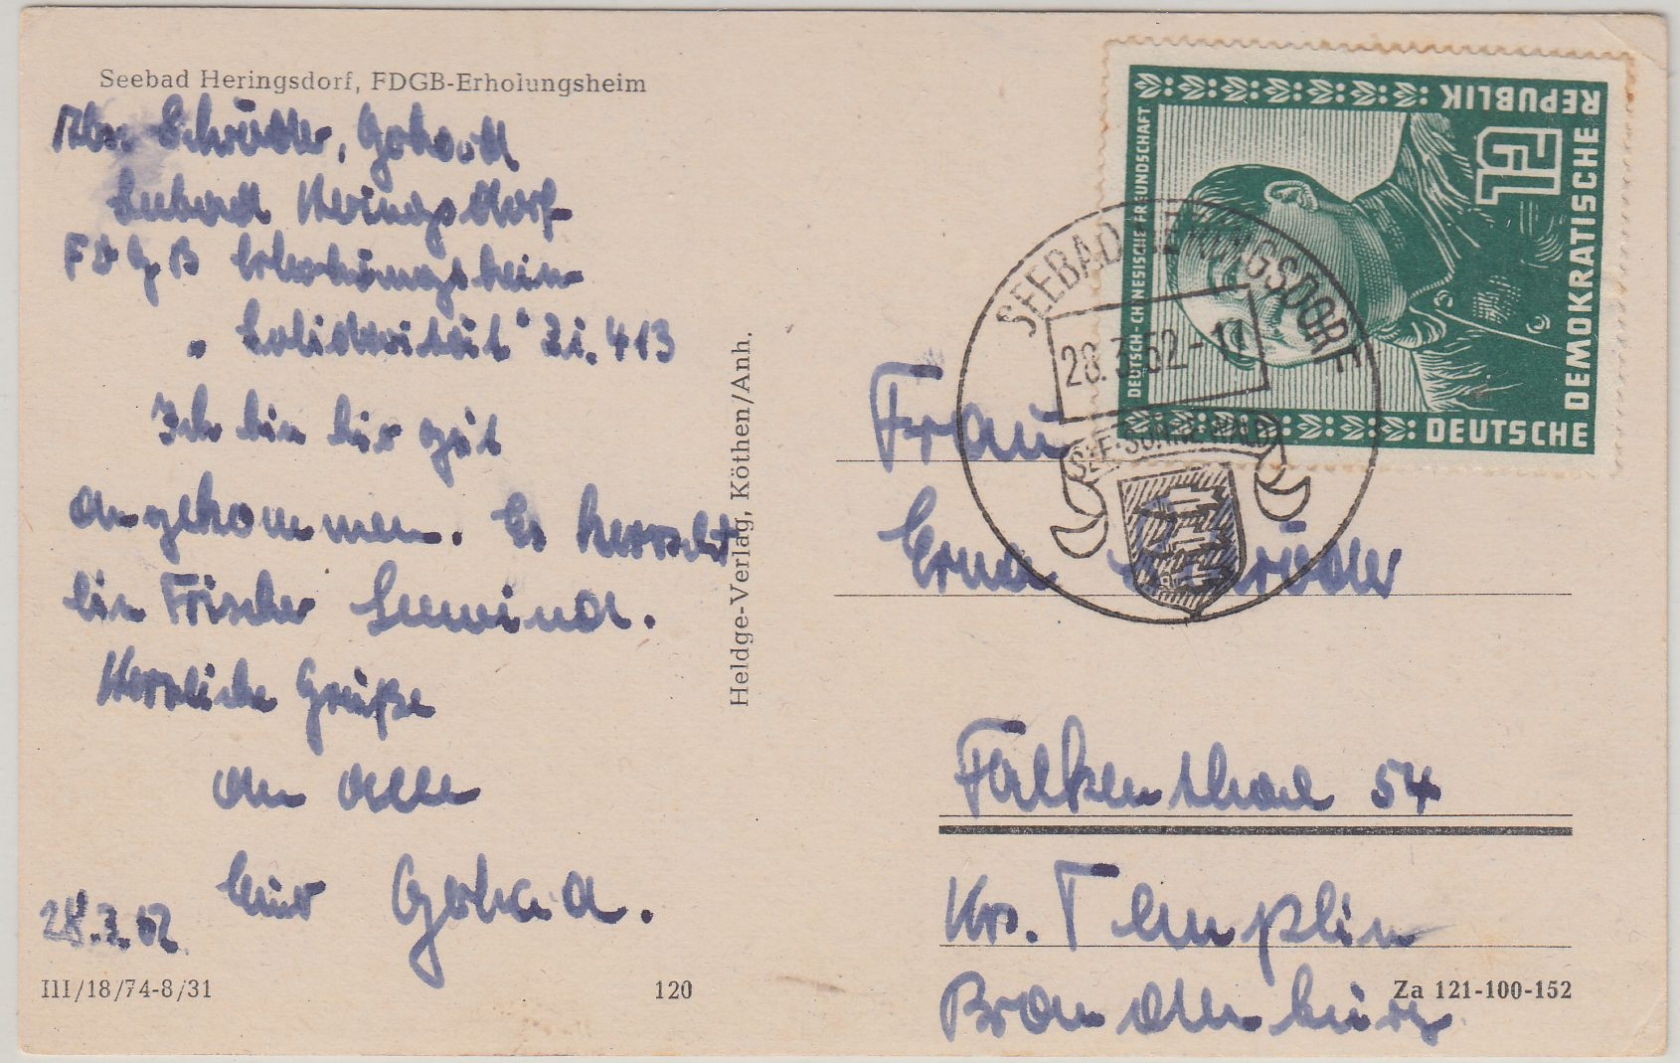 Seebad Heringsdorf, FDGB-Erholungsheim
Abs. Schröder, Gerhard
Seebad Heringsdorf
FDGB Erholungsheim
„Solidarität" Zi. 413
Ich bin hir gut
angekommen. Es herrscht
ein Frischer Seewind.
Herzliche Grüße
an alle
Euer Gerhard.
28.3.52
III/18/74-8/31
120
Heldge-Verlag, Köthen/Anh.
DEUTSCHE DEMOKRATISCHE REPUBLIK
12
DEUTSCH-CHINESISCHE FREUNDSCHAFT
SEEBAD HERINGSDORF
28.3.52.-17
SEE·SONNE·WALD
Frau
Erna Schröder
Falkenthal 54
Krs. Templin
Brandenburg
Za 121-100-152